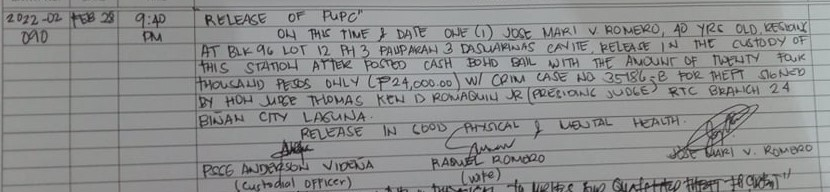 2022-02 FEB 28 9:40 RELEASE OF PUPC"
090 PM ON THIS TIME & DATE ONE (1) JOSE MARI V. ROMERO, 40 YRS OLD, RESIDING
AT BLK 96 LOT 12 PH 3 PAUPARAN 3 DASMARINAS CAVITE, RELEASE IN THE CUSTODY OF
THIS STATION AFTER POSTED CASH BOND BAIL WITH THE AMOUNT OF TWENTY FOUR
THOUSAND PESOS ONLY (₱24,000.00) W/ CRIM CASE NO 35186-B FOR THEFT SIGNED
BY HON JUDGE THOMAS KEN D ROMAQUIN JR (PRESIDING JUDGE) RTC BRANCH 24
BINAN CITY LAGUNA.
RELEASE IN GOOD PHYSICAL & MENTAL HEALTH.
ANDERSON VIDEÑA RAQUEL ROMERO JOSE MARI V. ROMERO
(custodial officer) (wife)